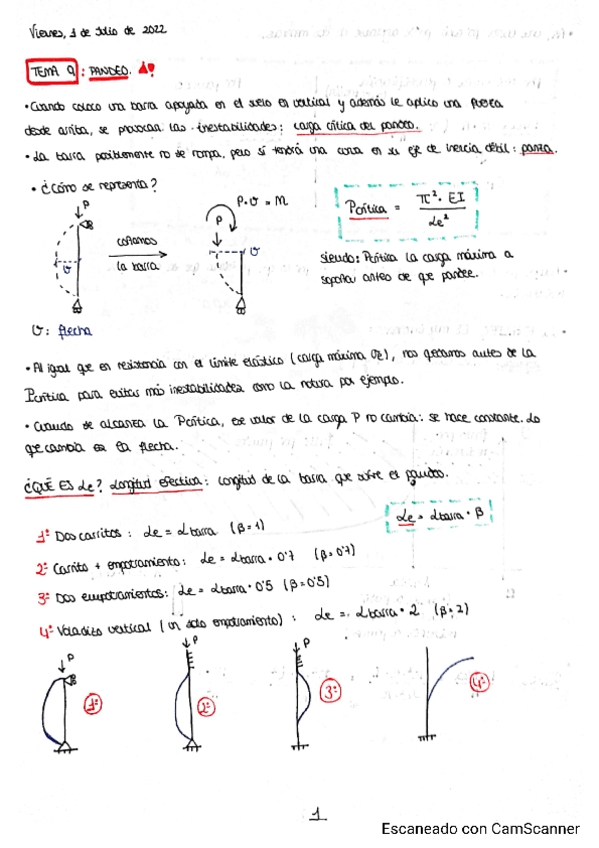 Viernes, 1 de Julio de 2022
TEMA 9: PANDEO.
• Cuando coloco una barra apoyada en el suelo en vertical y además le aplico una fuerza
desde arriba, se provocan las inestabilidades: carga crítica del pandeo.
• La barra posiblemente no se rompa, pero sí tendrá una curva en su eje de inercia débil: panza.
• ¿Cómo se representa?
P
P·v = M
P
v
cortamos
la barra
v
Pcrítica = π²·EI / Le²
siendo: Pcrítica la carga máxima a
soportar antes de que pandee.
v: flecha
• Al igual que en resistencia con el límite elástico (carga máxima σE), nos quedamos antes de la
Pcrítica para evitar más inestabilidades como la rotura por ejemplo.
• Cuando se alcanza la Pcrítica, ese valor de la carga P no cambia: se hace constante. Lo
que cambia es la flecha.
¿QUÉ ES Le? Longitud efectiva: longitud de la barra que sufre el pandeo.
Le = Lbarra · β
1º Dos carritos: Le = Lbarra (β=1)
2º Carrito + empotramiento: Le = Lbarra · 0'7 (β=0'7)
3º Dos empotramientos: Le = Lbarra · 0'5 (β=0'5)
4º Voladito vertical (un solo empotramiento): Le = Lbarra · 2 (β=2)
P
1º
P
2º
P
3º
4º
1
Escaneado con CamScanner